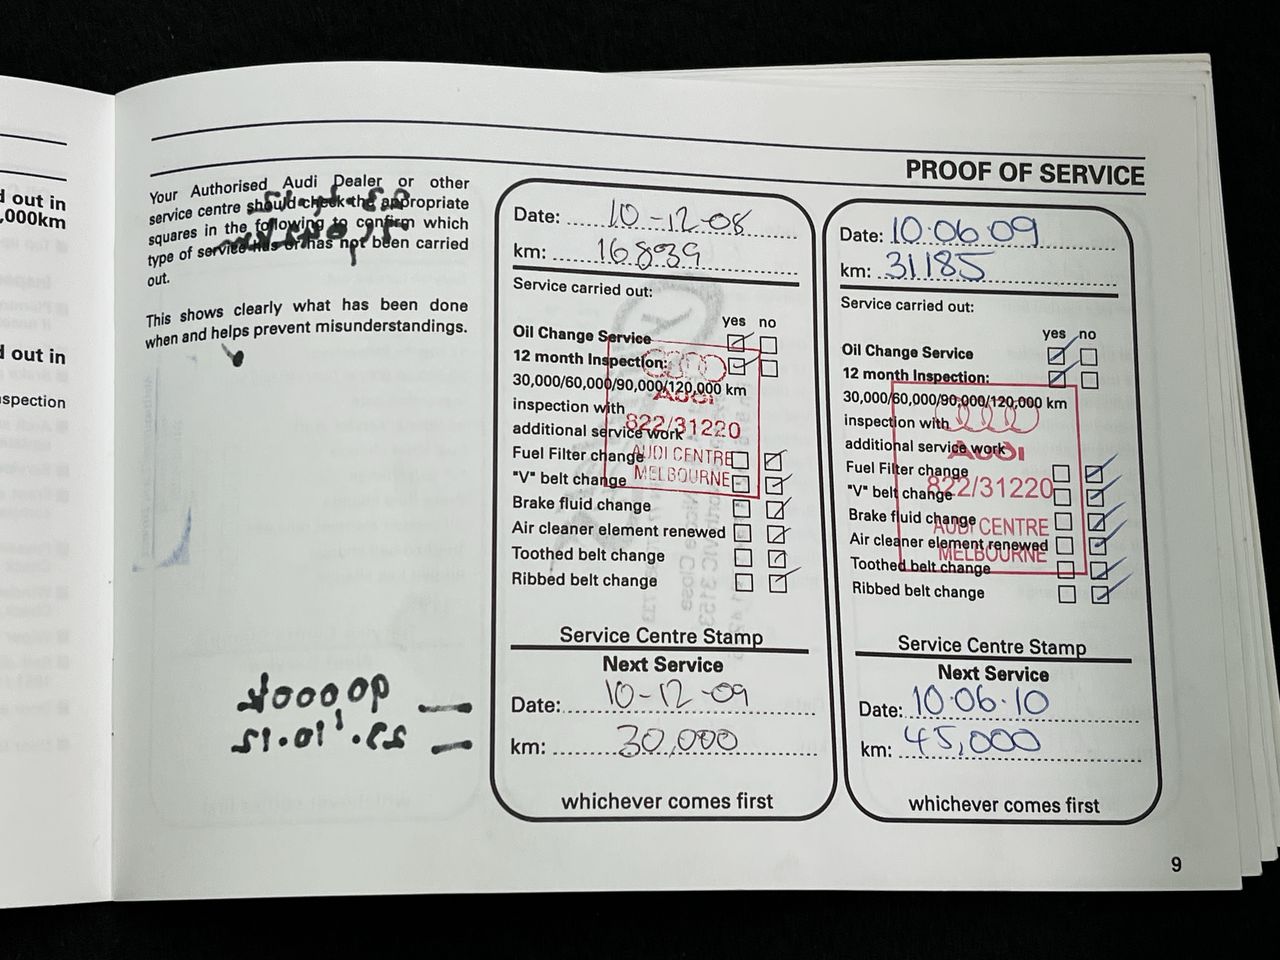 d out in
,000km
d out in
spection
PROOF OF SERVICE
Your Authorised Audi Dealer or other
service centre should check the appropriate
squares in the following to confirm which
type of service has or has not been carried
out.
This shows clearly what has been done
when and helps prevent misunderstandings.
Date: 10-12-08
km: 16839
Service carried out:
yes no
Oil Change Service
12 month Inspection:
30,000/60,000/90,000/120,000 km
inspection with
additional service work
Fuel Filter change
"V" belt change
Brake fluid change
Air cleaner element renewed
Toothed belt change
Ribbed belt change
AUDI
822/31220
AUDI CENTRE
MELBOURNE
Service Centre Stamp
Next Service
Date: 10-12-09
km: 30,000
whichever comes first
Date: 10.06.09
km: 31185
Service carried out:
yes no
Oil Change Service
12 month Inspection:
30,000/60,000/90,000/120,000 km
inspection with
additional service work
Fuel Filter change
"V" belt change
Brake fluid change
Air cleaner element renewed
Toothed belt change
Ribbed belt change
AUDI
822/31220
AUDI CENTRE
MELBOURNE
Service Centre Stamp
Next Service
Date: 10.06.10
km: 45,000
whichever comes first
9